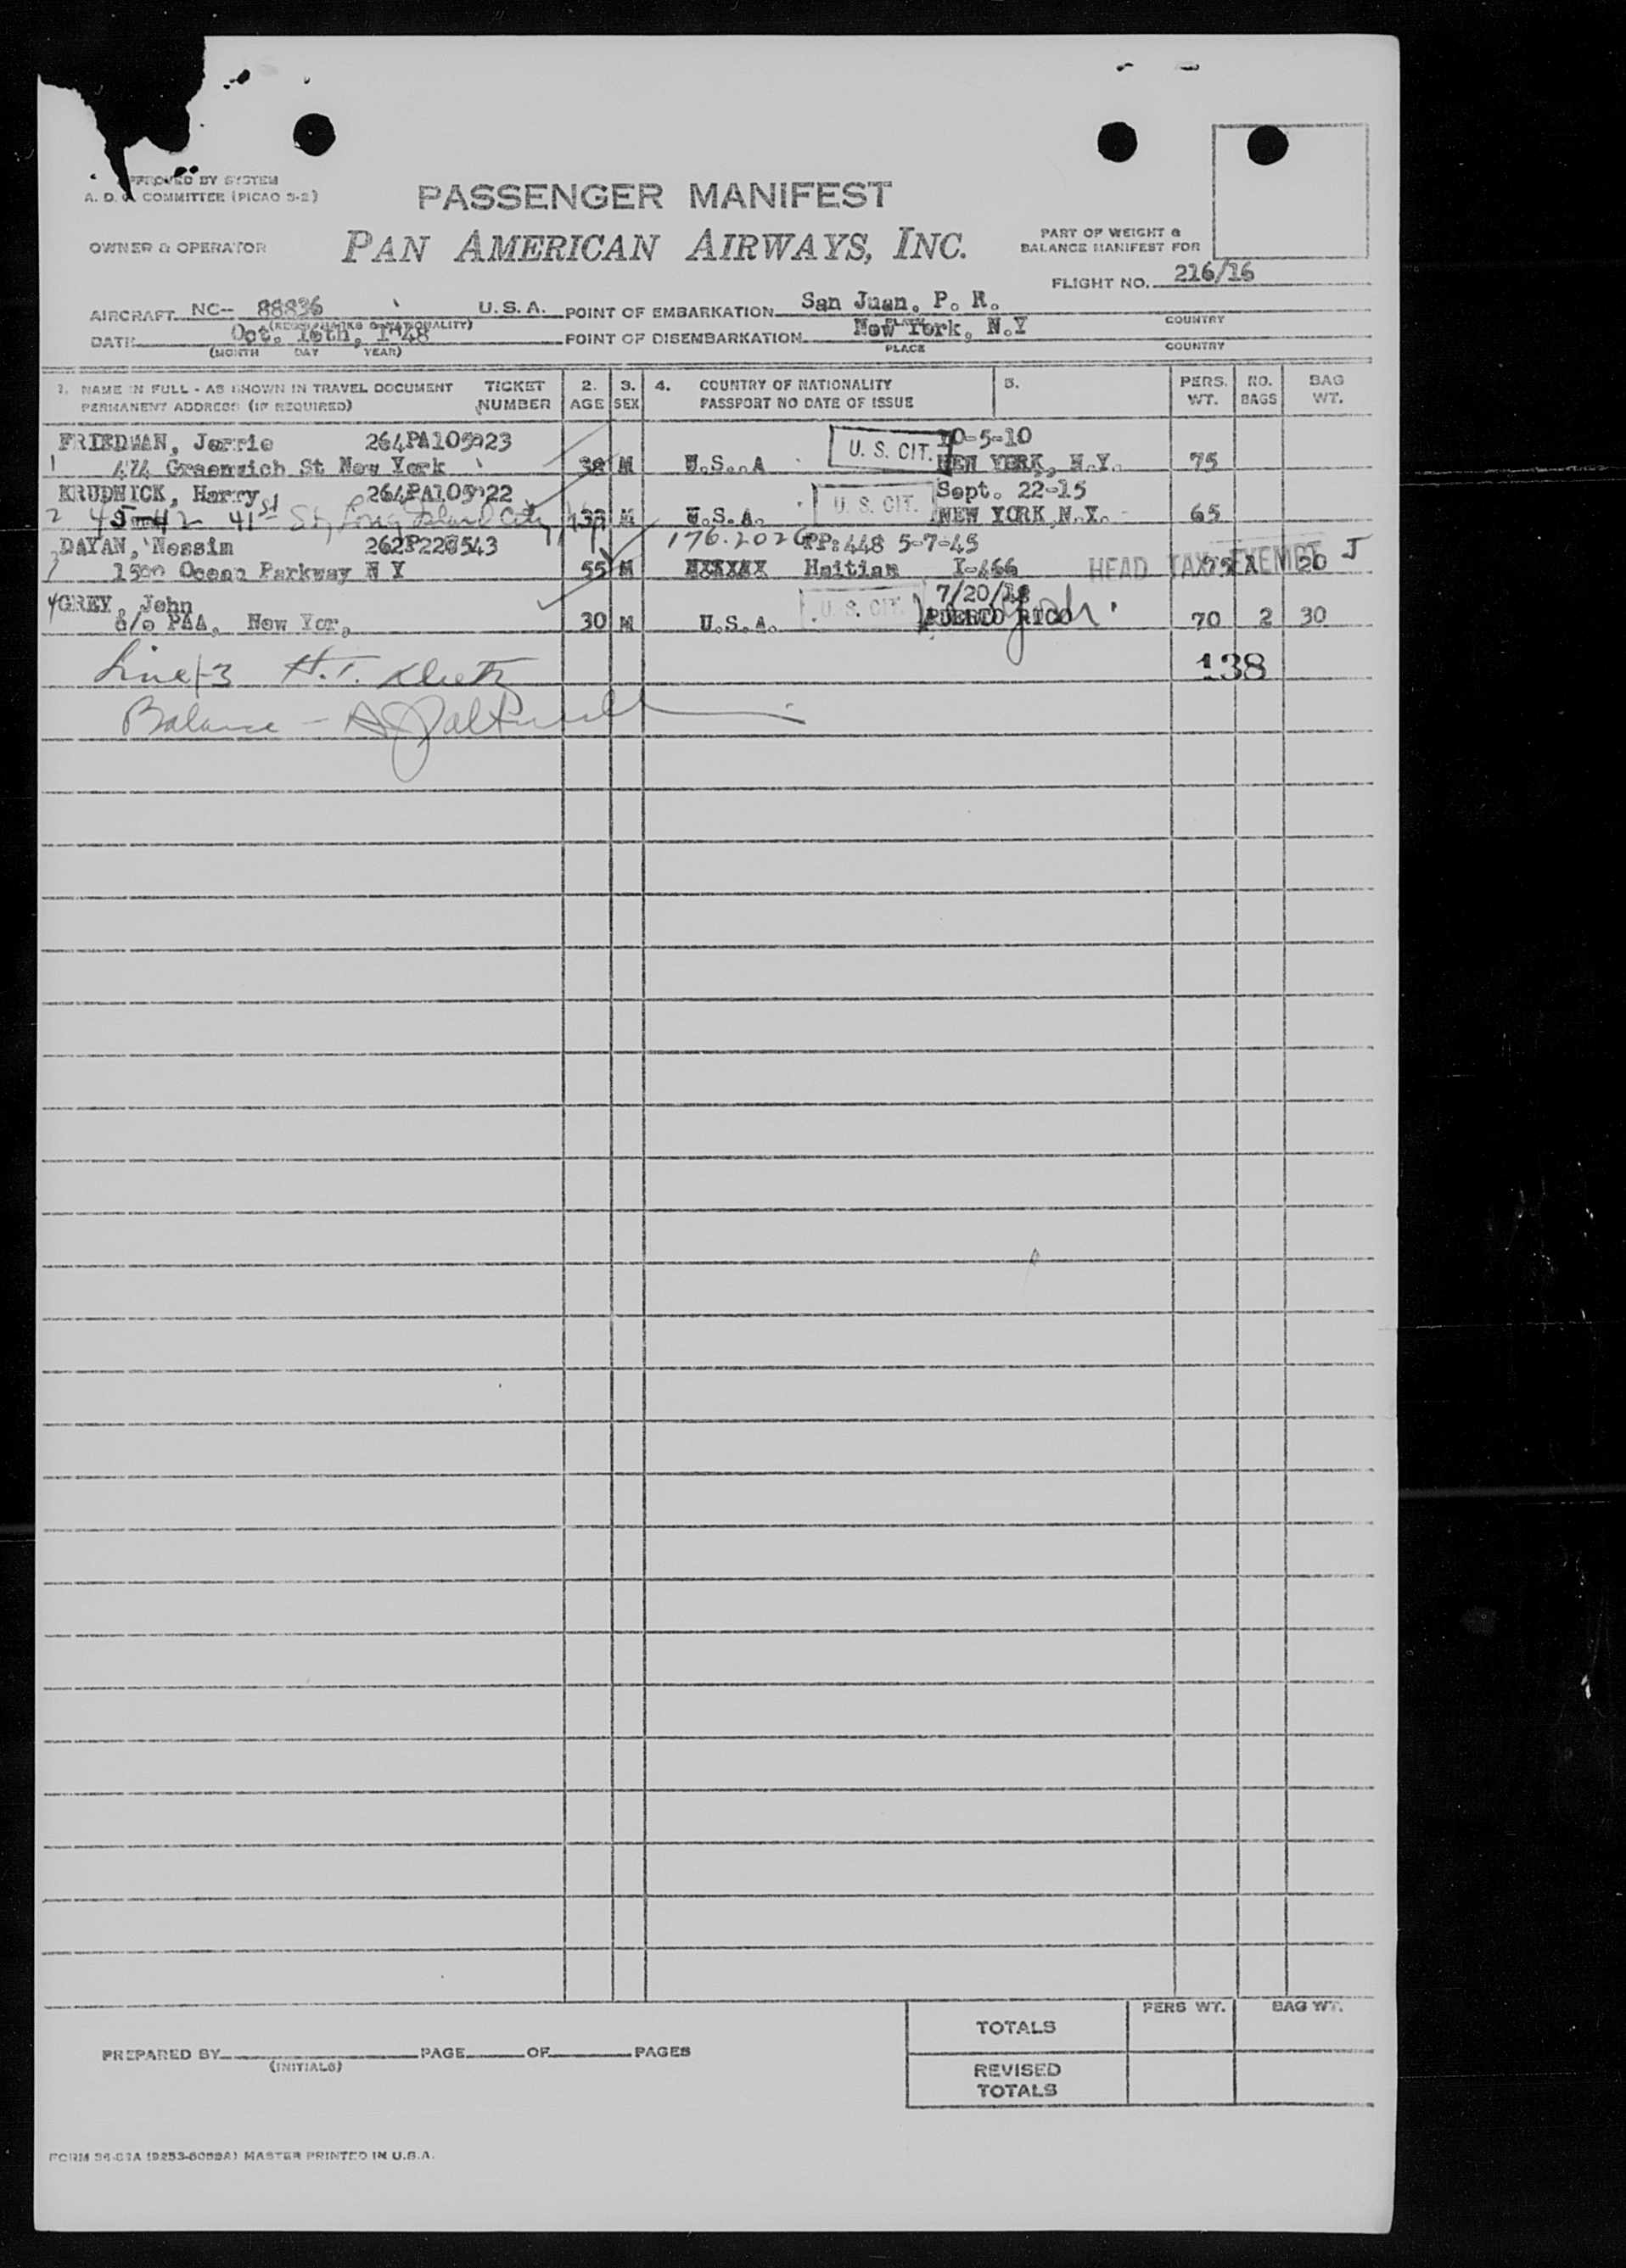 APPROVED BY SYSTEM
A. D. C. COMMITTEE (PICAO 3-2)
PASSENGER MANIFEST
OWNER & OPERATOR
PAN AMERICAN AIRWAYS, INC.
PART OF WEIGHT &
BALANCE MANIFEST FOR
FLIGHT NO. 216/16
AIRCRAFT NC-- 88836 U.S.A. POINT OF EMBARKATION San Juan, P. R.
PLACE COUNTRY
DATE Oct. 16th, 1948 POINT OF DISEMBARKATION New York, N.Y
(MONTH DAY YEAR) PLACE COUNTRY
1. NAME IN FULL - AS SHOWN IN TRAVEL DOCUMENT TICKET 2. 3. 4. COUNTRY OF NATIONALITY 5. PERS. NO. BAG
PERMANENT ADDRESS (IF REQUIRED) NUMBER AGE SEX PASSPORT NO DATE OF ISSUE WT. BAGS WT.
FRIEDMAN, Jerrie 264PA105923 U. S. CIT. 10-5-10
1 474 Greenwich St New York 38 M U.S.A NEW YORK, N.Y. 75
KRUDNICK, Harry 264PA105922 U. S. CIT. Sept. 22-15
2 45-42 41st St, Long Island City 33 M U.S.A. NEW YORK N.Y. 65
DAYAN, Nessim 262P228543 PP:448 5-7-45
3 1500 Ocean Parkway N Y 55 M XXXXXX Haitian I-466 HEAD TAX EXEMPT 75 20 J
4 GREY, John U. S. CIT. 7/20/18
c/o PAA, New Yor, 30 M U.S.A. PUERTO RICO 70 2 30
Line 3 H.T. 138
Balance -
TOTALS PERS WT. BAG WT.
PREPARED BY PAGE OF PAGES
(INITIALS)
REVISED
TOTALS
MASTER PRINTED IN U.S.A.